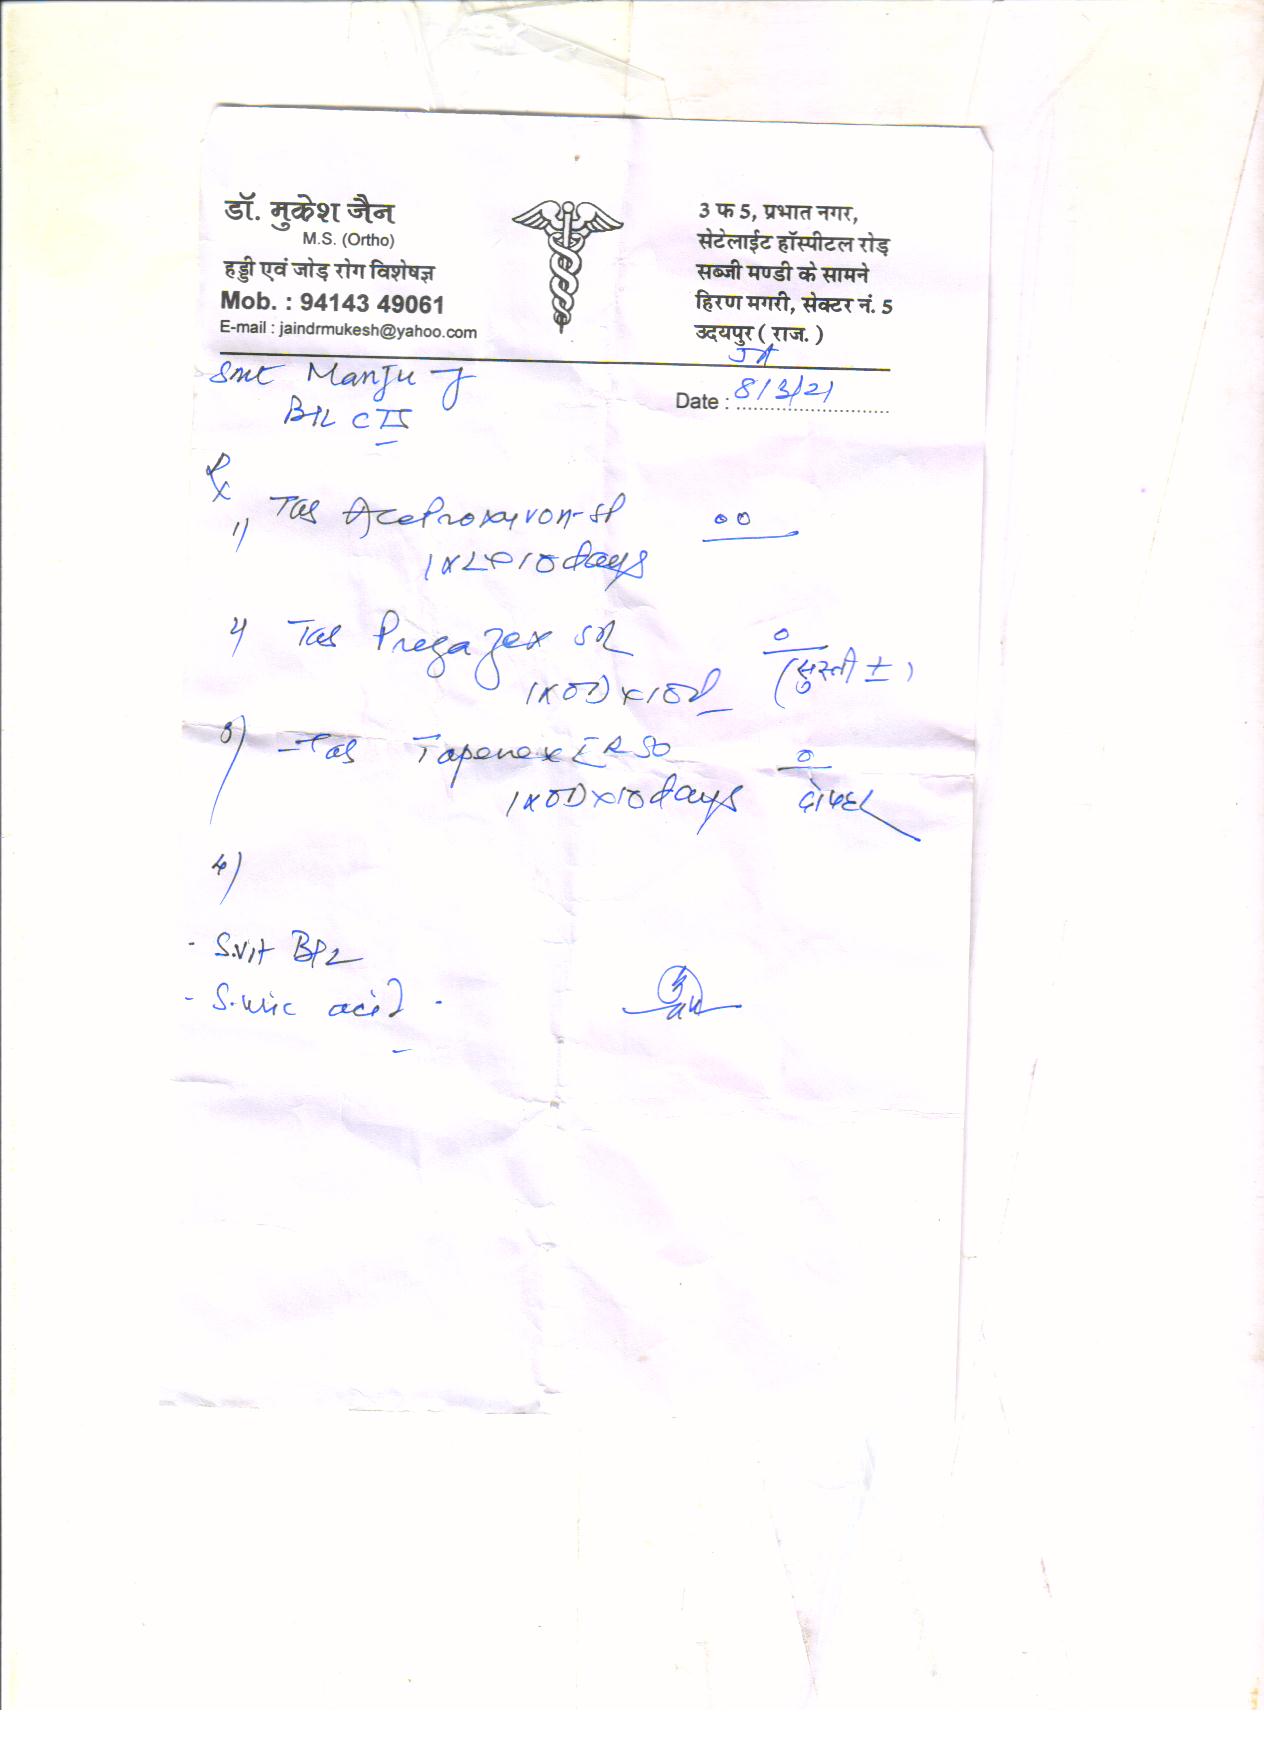 डॉ. मुकेश जैन
M.S. (Ortho)
हड्डी एवं जोड़ रोग विशेषज्ञ
Mob. : 94143 49061
E-mail : jaindrmukesh@yahoo.com
3 फ 5, प्रभात नगर,
सेटेलाईट हॉस्पीटल रोड़
सब्जी मण्डी के सामने
हिरण मगरी, सेक्टर नं. 5
उदयपुर ( राज. )
Smt Manju J
Date : 8/3/21
B/L
Rx
1) Tab Aceproxyvon-SP
10 days
Tab Pregazex SR
1xODx10d (सुस्ती ±)
3) Tab Tapenex ER 50
1xODx10days दोपहर
4)
- S.Vit B12
- S.uric acid